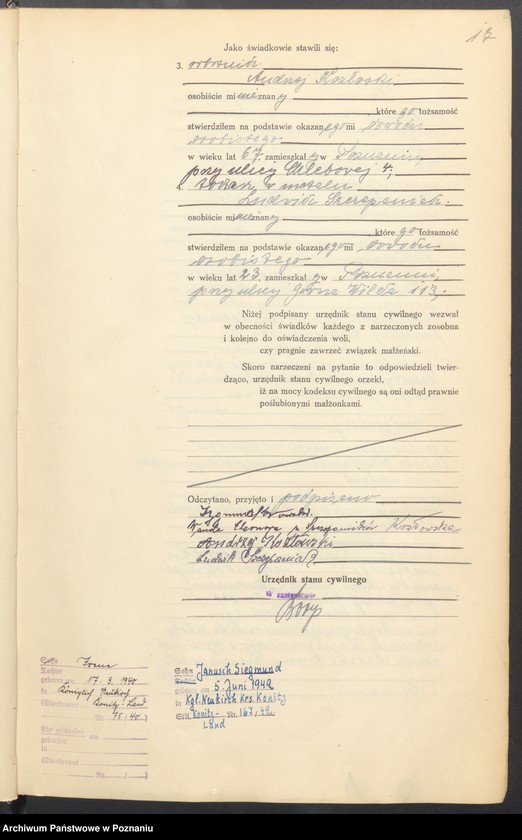 17
Jako świadkowie stawili się:
3. robotnik
Andrzej Kozłoski
osobiście mi nieznany
, które go tożsamość
stwierdziłem na podstawie okazanego mi dowodu
osobistego
w wieku lat 67, zamieszkały w Poznaniu
przy ulicy Chlebowej 4,
4. tokarz w metalu
Ludwik Szczepaniak
osobiście mi nieznany
, które go tożsamość
stwierdziłem na podstawie okazanego mi dowodu
osobistego
w wieku lat 23, zamieszkały w Poznaniu
przy ulicy Górna Wilda 113,
Niżej podpisany urzędnik stanu cywilnego wezwał
w obecności świadków każdego z narzeczonych zosobna
i kolejno do oświadczenia woli,
czy pragnie zawrzeć związek małżeński.
Skoro narzeczeni na pytanie to odpowiedzieli twier-
dząco, urzędnik stanu cywilnego orzekł,
iż na mocy kodeksu cywilnego są oni odtąd prawnie
poślubionymi małżonkami.
Odczytano, przyjęto i podpisano
Wanda z Szczepaniaków Kozłowska
Andrzej Kozłowski
Ludwik Szczepaniak
Urzędnik stanu cywilnego
W zastępstwie
Sohn Irena
Tochter
geboren am 17. 3. 1940
in Königlich Neukirch
(Standesamt Konitz-Land
Nr. 75/40)
Ehe geschlossen am
geschieden
in
(Standesamt
Nr. / )
Sohn Janusch Siegmund
Tochter
geboren am 5. Juni 1942
in Kgl. Neukirch Krs. Konitz
StA. Konitz- Nr. 167/42
Land
Archiwum Państwowe w Poznaniu